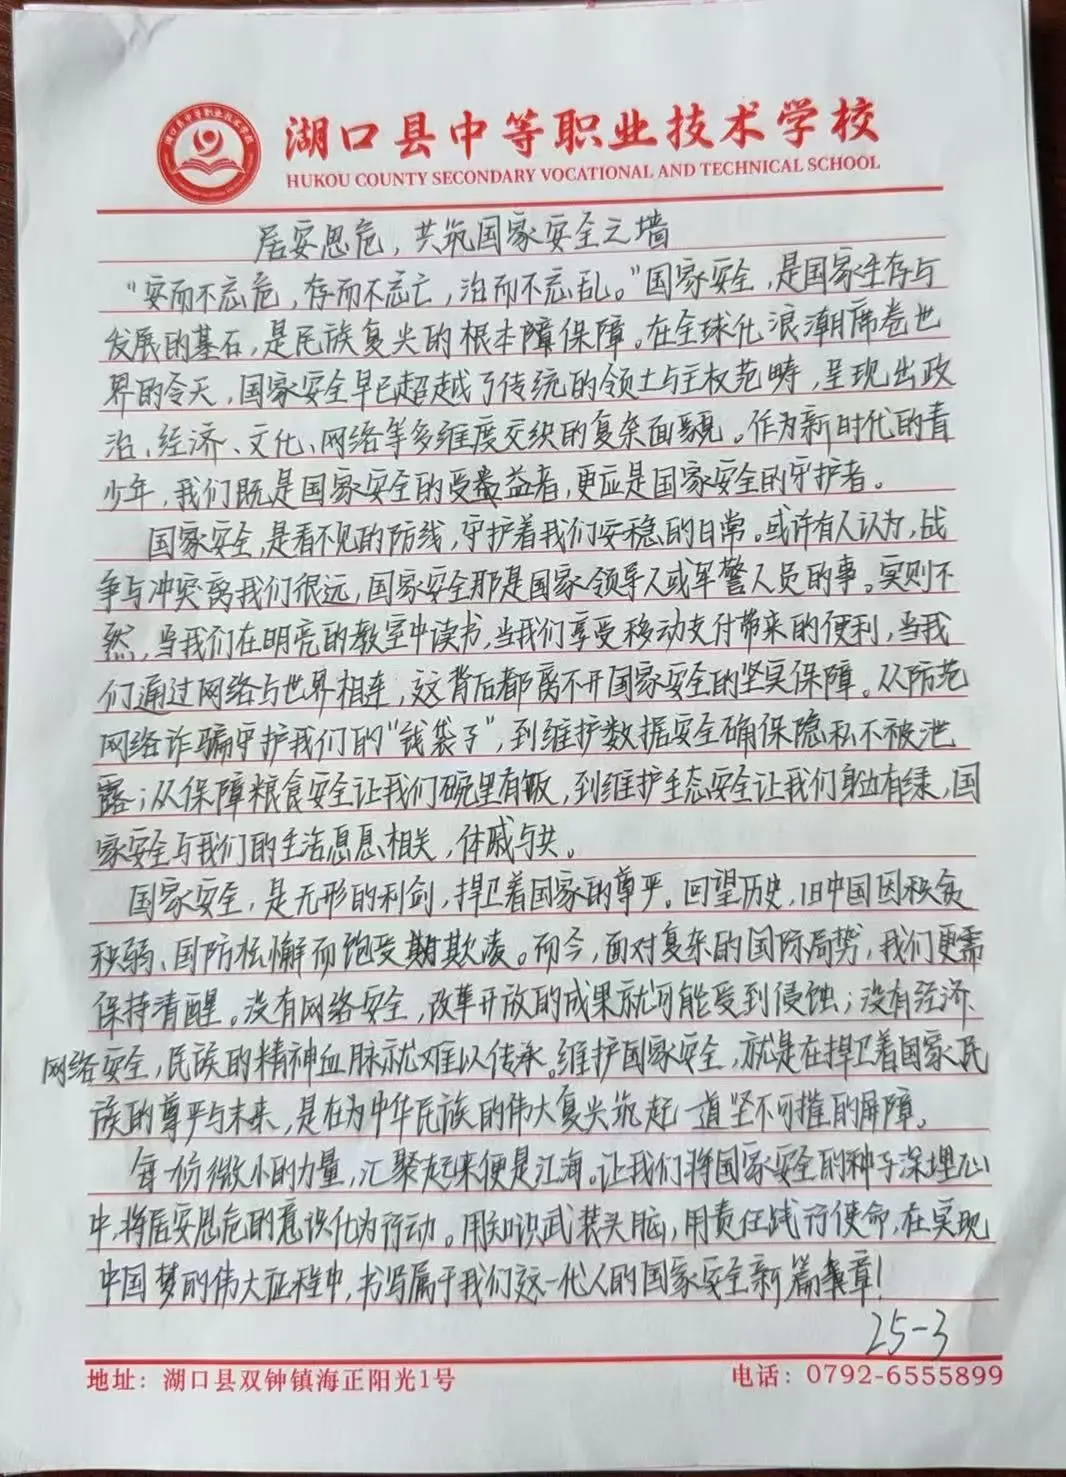 湖口县中等职业技术学校
HUKOU COUNTY SECONDARY VOCATIONAL AND TECHNICAL SCHOOL
居安思危，共筑国家安全之墙
“安而不忘危，存而不忘亡，治而不忘乱。”国家安全，是国家生存与
发展的基石，是民族复兴的根本障保障。在全球化浪潮席卷世
界的今天，国家安全早已超越了传统的领土与主权范畴，呈现出政
治、经济、文化、网络等多维度交织的复杂面貌。作为新时代的青
少年，我们既是国家安全的受益者，更应是国家安全的守护者。
国家安全，是看不见的防线，守护着我们安稳的日常。或许有人认为，战
争与冲突离我们很远，国家安全那是国家领导人或军警人员的事。实则不
然，当我们在明亮的教室中读书，当我们享受移动支付带来的便利，当我
们通过网络与世界相连，这背后都离不开国家安全的坚实保障。从防范
网络诈骗守护我们的“钱袋子”，到维护数据安全确保隐私不被泄
露；从保障粮食安全让我们碗里有饭，到维护生态安全让我们身边有绿，国
家安全与我们的生活息息相关，休戚与共。
国家安全，是无形的利剑，捍卫着国家的尊严。回望历史，旧中国因积贫
积弱、国防松懈而饱受欺凌。而今，面对复杂的国际局势，我们更需
保持清醒。没有网络安全，改革开放的成果就可能受到侵蚀；没有经济、
网络安全，民族的精神血脉就难以传承。维护国家安全，就是在捍卫着国家民
族的尊严与未来，是在为中华民族的伟大复兴筑起一道坚不可摧的屏障。
每一份微小的力量，汇聚起来便是江海。让我们将国家安全的种子深埋心
中，将居安思危的意识化为行动。用知识武装头脑，用责任践行使命，在实现
中国梦的伟大征程中，书写属于我们这一代人的国家安全新篇章！
25-3
地址：湖口县双钟镇海正阳光1号
电话：0792-6555899